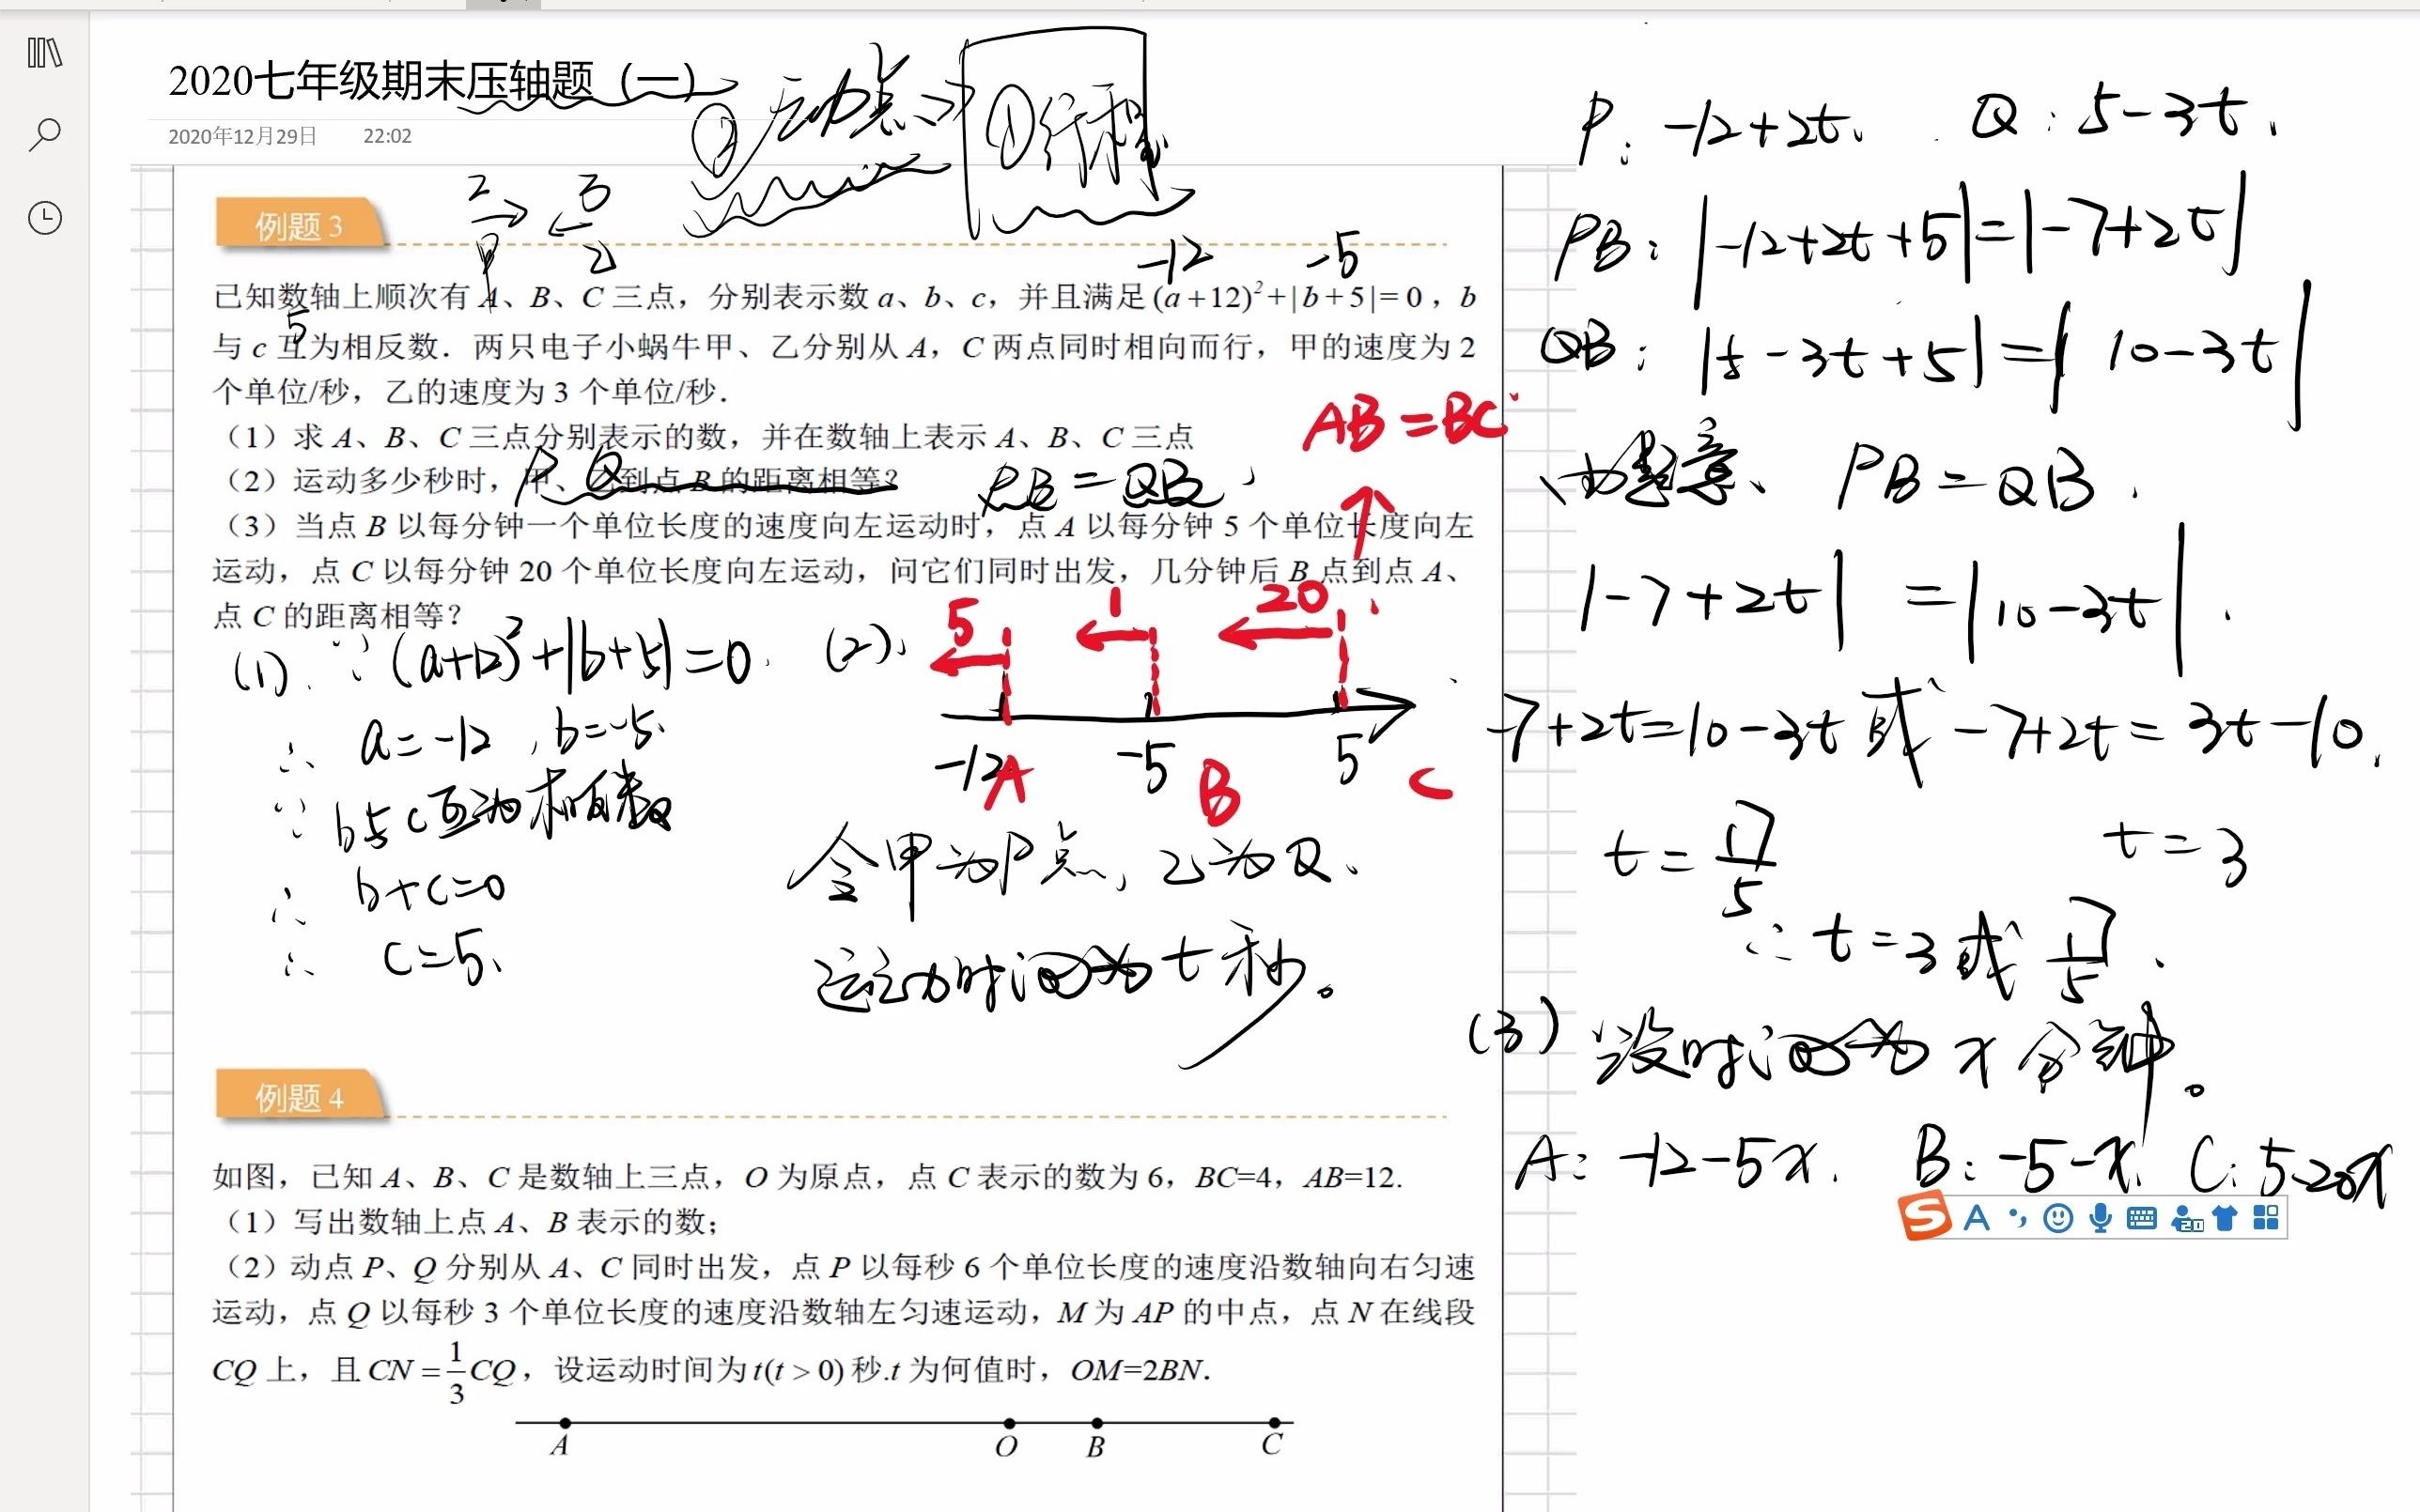 2020七年级期末压轴题（一）
2020年12月29日 22:02
② 动点 → ①行程
例题 3
2 3
-12 -5
已知数轴上顺次有 A、B、C 三点，分别表示数 a、b、c，并且满足 (a+12)²+|b+5|=0，b
5
与 c 互为相反数．两只电子小蜗牛甲、乙分别从 A，C 两点同时相向而行，甲的速度为 2
个单位/秒，乙的速度为 3 个单位/秒．
（1）求 A、B、C 三点分别表示的数，并在数轴上表示 A、B、C 三点
（2）运动多少秒时，甲、乙到点 B 的距离相等？
P Q
PB=QB
AB=BC
（3）当点 B 以每分钟一个单位长度的速度向左运动时，点 A 以每分钟 5 个单位长度向左
运动，点 C 以每分钟 20 个单位长度向左运动，问它们同时出发，几分钟后 B 点到点 A、
点 C 的距离相等？
(1). ∵ (a+12)²+|b+5|=0.
∴ a=-12, b=-5.
∵ b与c互为相反数
∴ b+c=0
∴ c=5.
(2).
5 1 20
-12 -5 5
A B C
令甲为P点，乙为Q、
运动时间为 t 秒。
P: -12+2t. Q: 5-3t.
PB: |-12+2t+5|=|-7+2t|
QB: |5-3t+5|=|10-3t|
由题意、PB=QB.
|-7+2t|=|10-3t|.
-7+2t=10-3t 或 -7+2t=3t-10.
t=17/5 t=3
∴ t=3或17/5.
(3) 设时间为 x 分钟。
A: -12-5x. B: -5-x. C: 5-20x
例题 4
如图，已知 A、B、C 是数轴上三点，O 为原点，点 C 表示的数为 6，BC=4，AB=12.
（1）写出数轴上点 A、B 表示的数；
（2）动点 P、Q 分别从 A、C 同时出发，点 P 以每秒 6 个单位长度的速度沿数轴向右匀速
运动，点 Q 以每秒 3 个单位长度的速度沿数轴左匀速运动，M 为 AP 的中点，点 N 在线段
CQ 上，且 CN=1/3CQ，设运动时间为 t(t>0) 秒.t 为何值时，OM=2BN.
A O B C